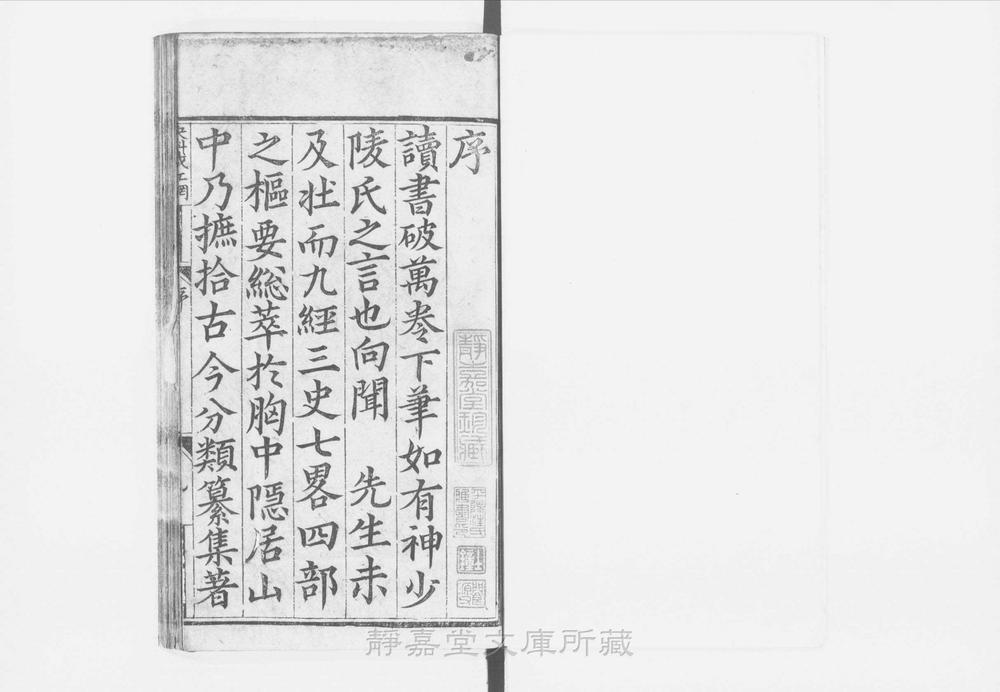 序
讀書破萬卷下筆如有神少
陵氏之言也向聞　先生未
及壯而九經三史七畧四部
之樞要總萃於胸中隱居山
中乃摭拾古今分類纂集著
序
靜嘉堂珍藏
靜嘉堂文庫所藏